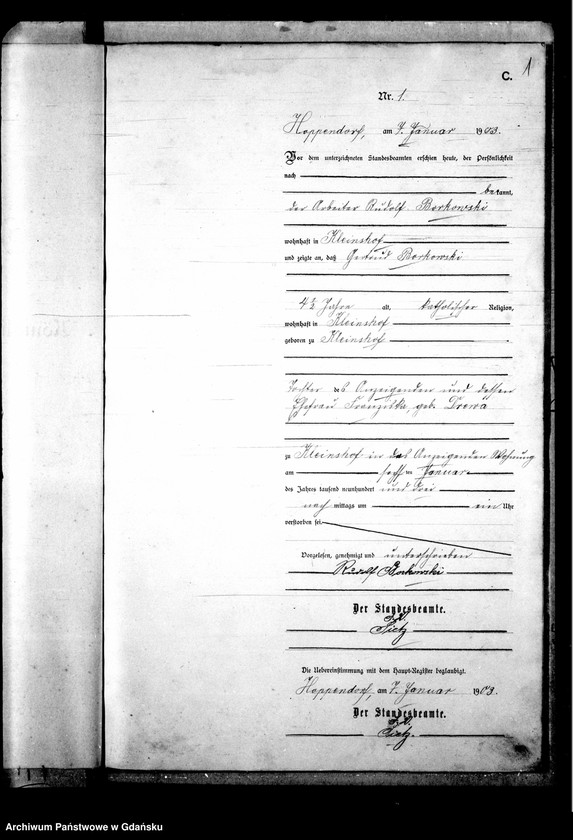 C. 1
Nr. 1.
Hoppendorf, am 7. Januar 1903.
Vor dem unterzeichneten Standesbeamten erschien heute, der Persönlichkeit
nach
bekannt,
der Arbeiter Rudolf Borkowski
wohnhaft in Kleinshof
und zeigte an, daß Gertrud Borkowski
4½ Jahre alt, katholischer Religion,
wohnhaft in Kleinshof
geboren zu Kleinshof
Tochter des Anzeigenden und dessen
Ehefrau Franziska, geb. Drewa
zu Kleinshof in des Anzeigenden Wohnung
am sechsten Januar
des Jahres tausend neunhundert und drei
nachmittags um ein Uhr
verstorben sei.
Vorgelesen, genehmigt und unterschrieben
Rudolf Borkowski
Der Standesbeamte.
Tietz
Die Uebereinstimmung mit dem Haupt-Register beglaubigt.
Hoppendorf, am 7. Januar 1903.
Der Standesbeamte.
Tietz.
Archiwum Państwowe w Gdańsku